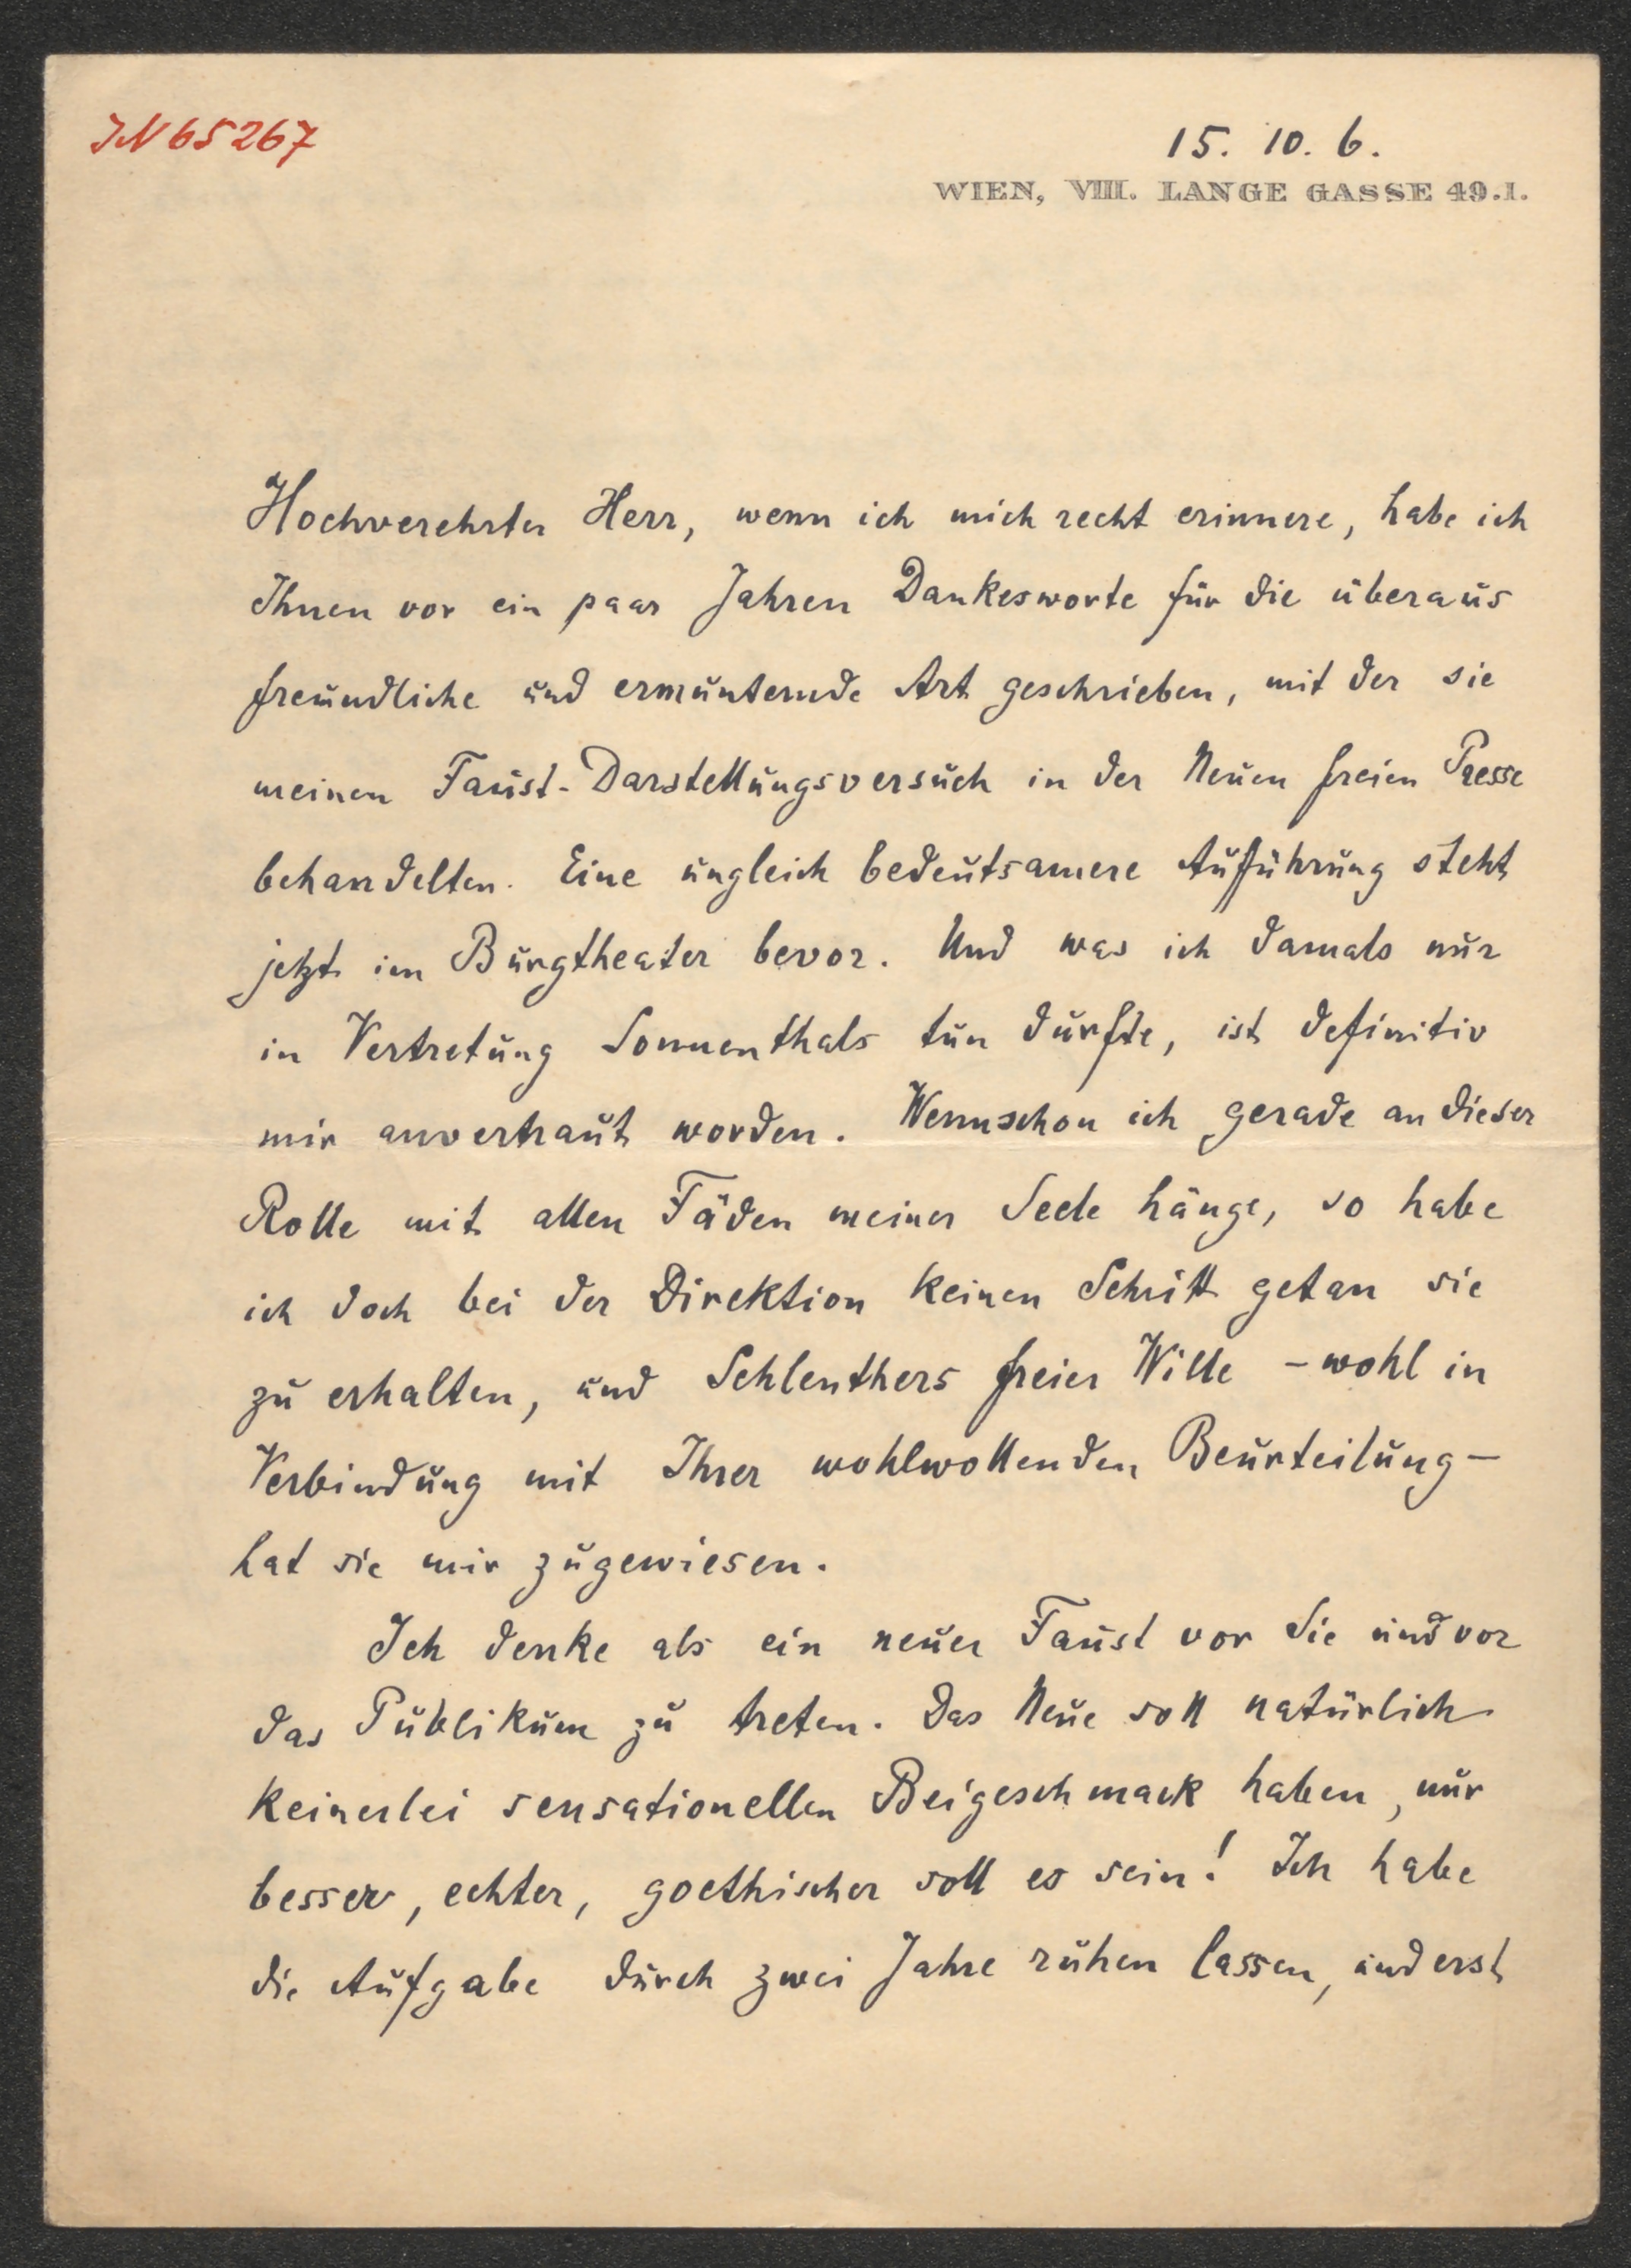 IN 65267
15. 10. 6.
WIEN, VIII. LANGE GASSE 49.I.
Hochverehrter Herr, wenn ich mich recht erinnere, habe ich
Ihnen vor ein paar Jahren Dankesworte für die überaus
freundliche und ermunternde Art geschrieben, mit der sie
meinen Faust-Darstellungsversuch in der Neuen freien Presse
behandelten. Eine ungleich bedeutsamere Aufführung steht
jetzt im Burgtheater bevor. Und was ich damals nur
in Vertretung Sonnenthals tun durfte, ist definitiv
mir anvertraut worden. Wennschon ich gerade an dieser
Rolle mit allen Fäden meiner Seele hänge, so habe
ich doch bei der Direktion keinen Schritt getan sie
zu erhalten, und Schlenthers freier Wille – wohl in
Verbindung mit Ihrer wohlwollenden Beurteilung –
hat sie mir zugewiesen.
Ich denke als ein neuer Faust vor Sie und vor
das Publikum zu treten. Das Neue soll natürlich
keinerlei sensationellen Beigeschmack haben, nur
besser, echter, goethischer soll es sein! Ich habe
die Aufgabe durch zwei Jahre ruhen lassen, und erst